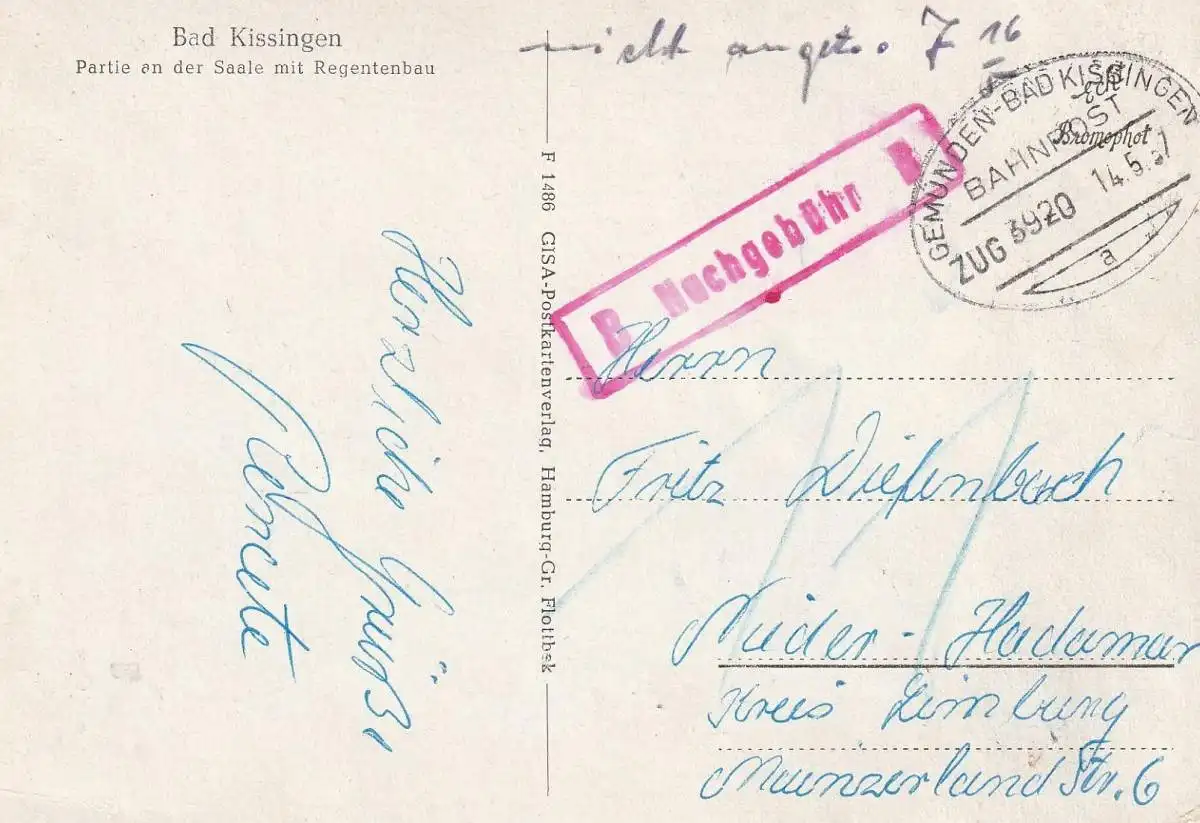 Bad Kissingen
Partie an der Saale mit Regentenbau
nicht anget.
16
GEMÜNDEN-BAD KISSINGEN
BAHNPOST
ZUG 3920 14.5.57
a
Bromophot
Nachgebühr
F 1486 GISA-Postkartenverlag, Hamburg-Gr. Flottbek
Herzliche Grüße
Herrn
Fritz Diefenbach
Nieder-Hadamar
Kreis Limburg
Mainzerland Str. 6